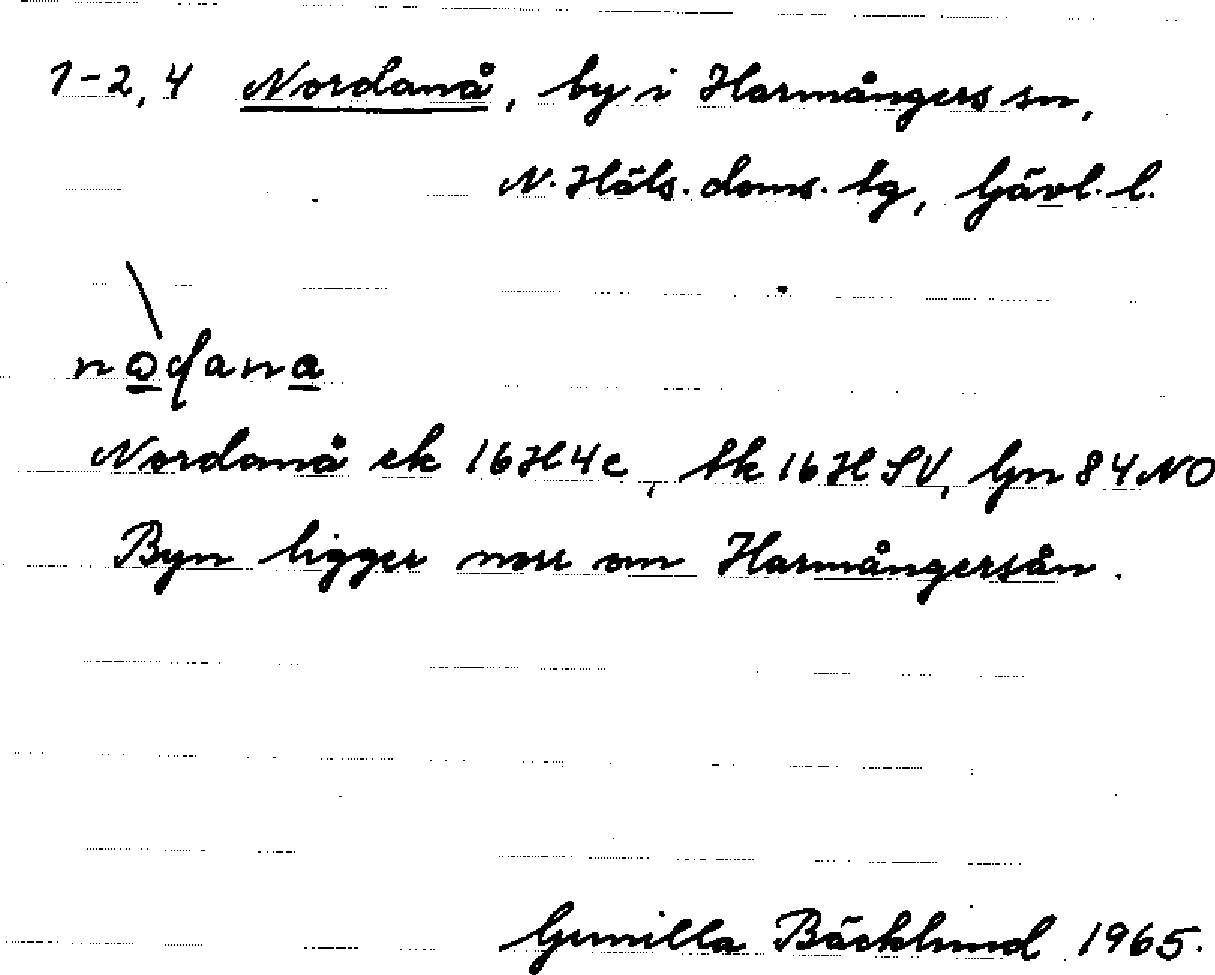 1-2, 4 Nordanå, by i Harmångers sn,
N. Häls. doms. tg, Gävl. l.
Nordanå ek 16H4c, tk 16H SV, Gn 84 NO
Byn ligger norr om Harmångersån.
Gunilla Bäcklund 1965.